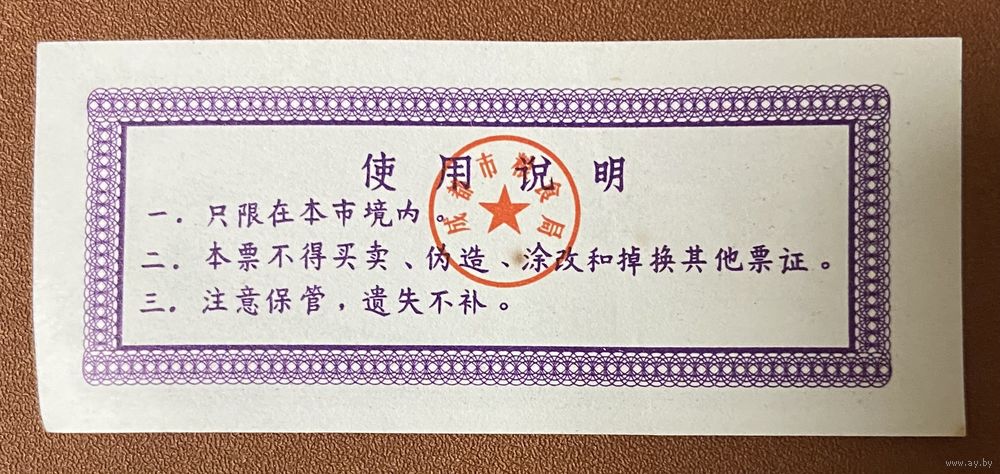 使用说明
一．只限在本市境内。
二．本票不得买卖、伪造、涂改和掉换其他票证。
三．注意保管，遗失不补。
成都市粮食局
www.ay.by